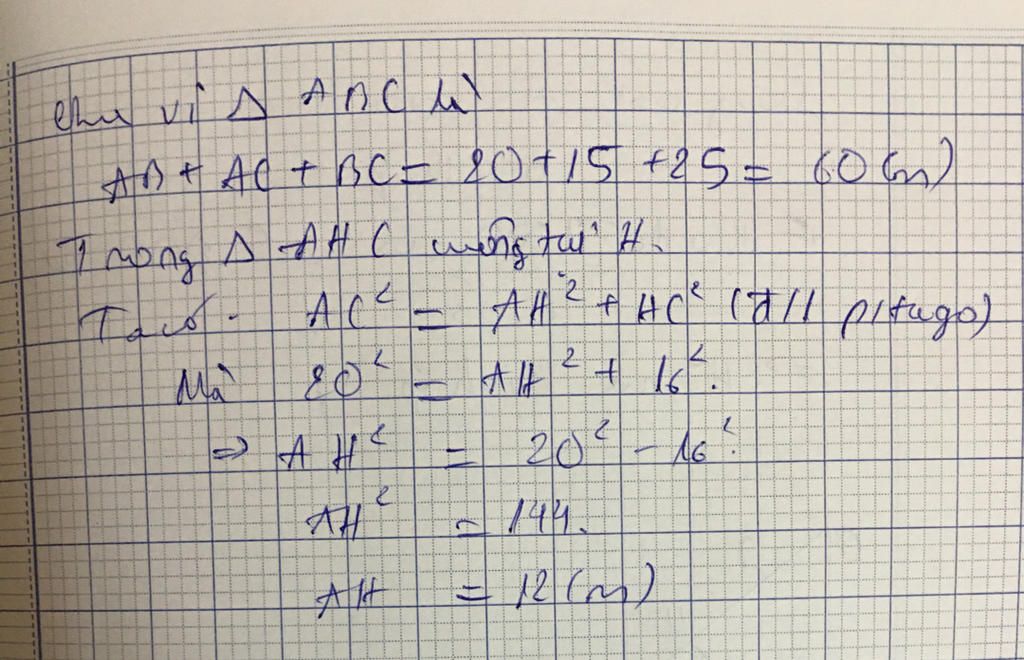 Chu vi Δ ABC là
AB + AC + BC = 20 + 15 + 25 = 60 (m)
Trong Δ AHC vuông tại H.
Ta có. AC² = AH² + HC² (đ/l pitago)
Mà 20² = AH² + 16².
⇒ AH² = 20² - 16².
AH² = 144.
AH = 12 (m)